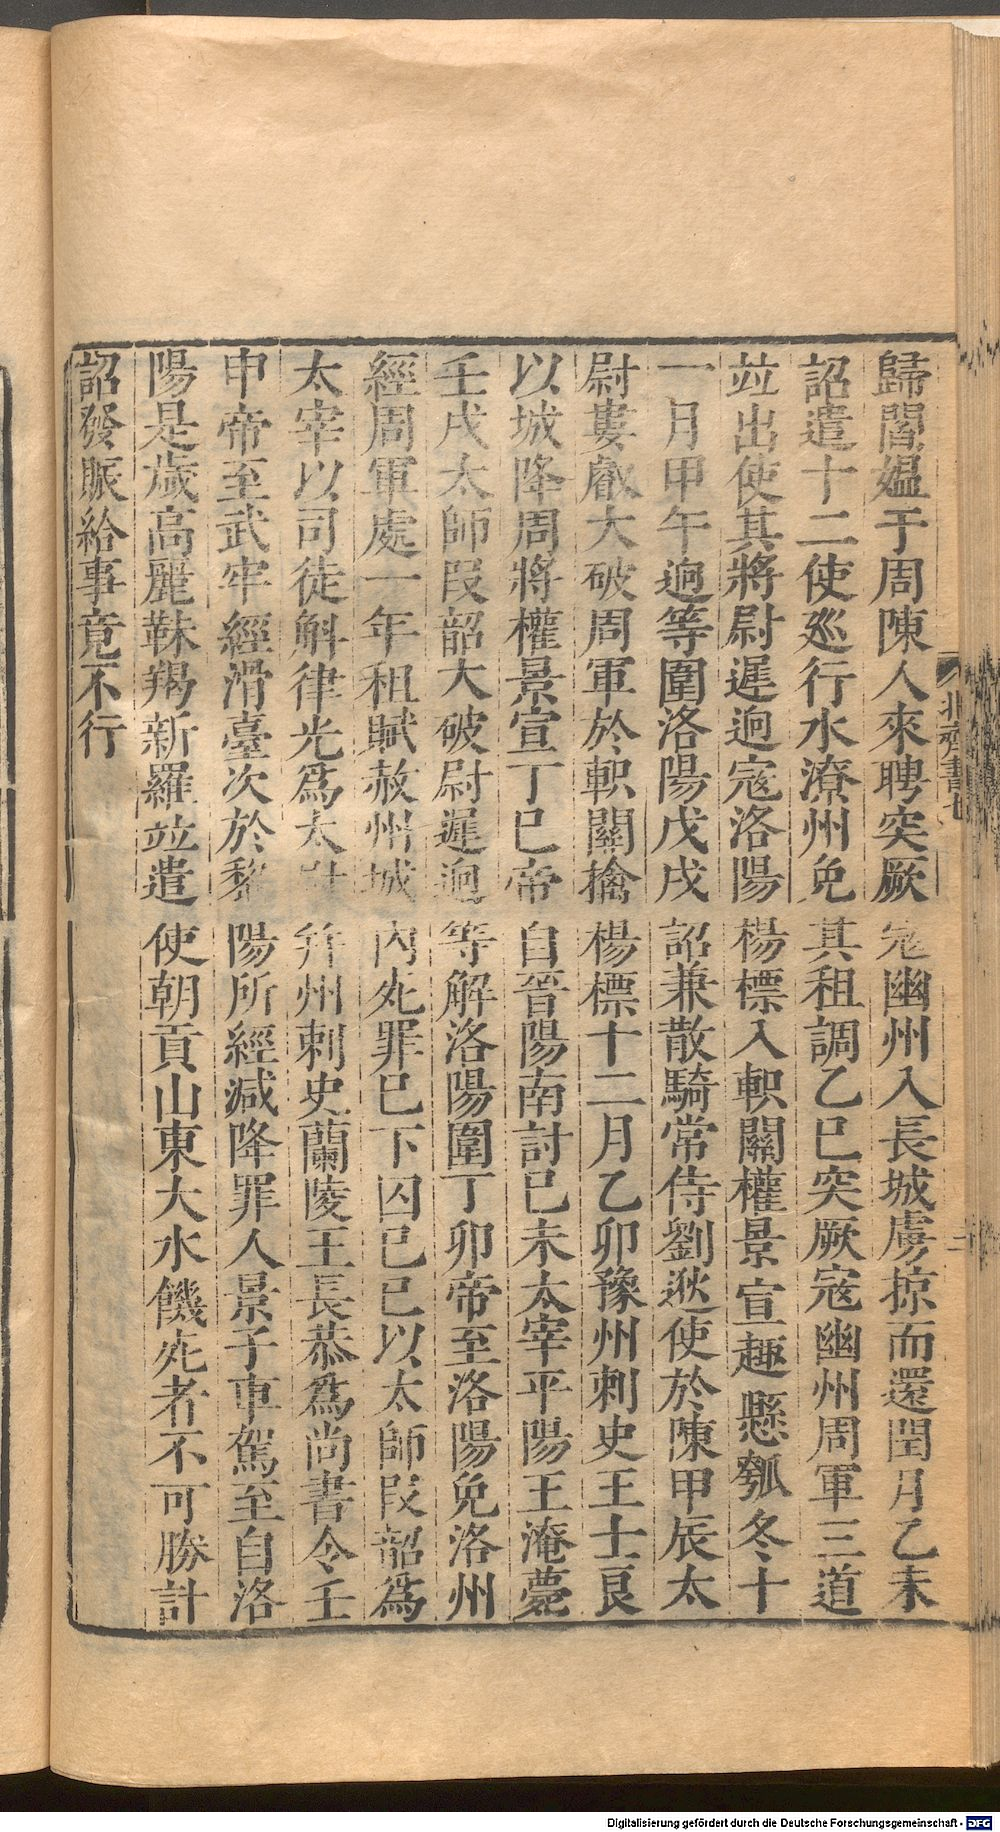 歸閻媼于周陳人來聘突厥寇幽州入長城虜掠而還閏月乙未
詔遣十二使廵行水潦州免其租調乙巳突厥寇幽州周軍三道
並出使其將尉遲逈寇洛陽楊標入軹關權景宣趣懸瓠冬十
一月甲午逈等圍洛陽戊戌詔兼散騎常侍劉逖使於陳甲辰太
尉婁叡大破周軍於軹關擒楊標十二月乙卯豫州刺史王士良
以城降周將權景宣丁巳帝自晉陽南討己未太宰平陽王淹薨
壬戌太師段韶大破尉遲逈等解洛陽圍丁卯帝至洛陽免洛州
經周軍處一年租賦赦州城內死罪已下囚己巳以太師段韶為
太宰以司徒斛律光爲太尉并州刺史蘭陵王長恭爲尚書令壬
申帝至武牢經滑臺次於黎陽所經減降罪人景子車駕至自洛
陽是歲高麗靺羯新羅並遣使朝貢山東大水饑死者不可勝計
詔發賑給事竟不行
北齊書七
二
Digitalisierung gefördert durch die Deutsche Forschungsgemeinschaft - DFG